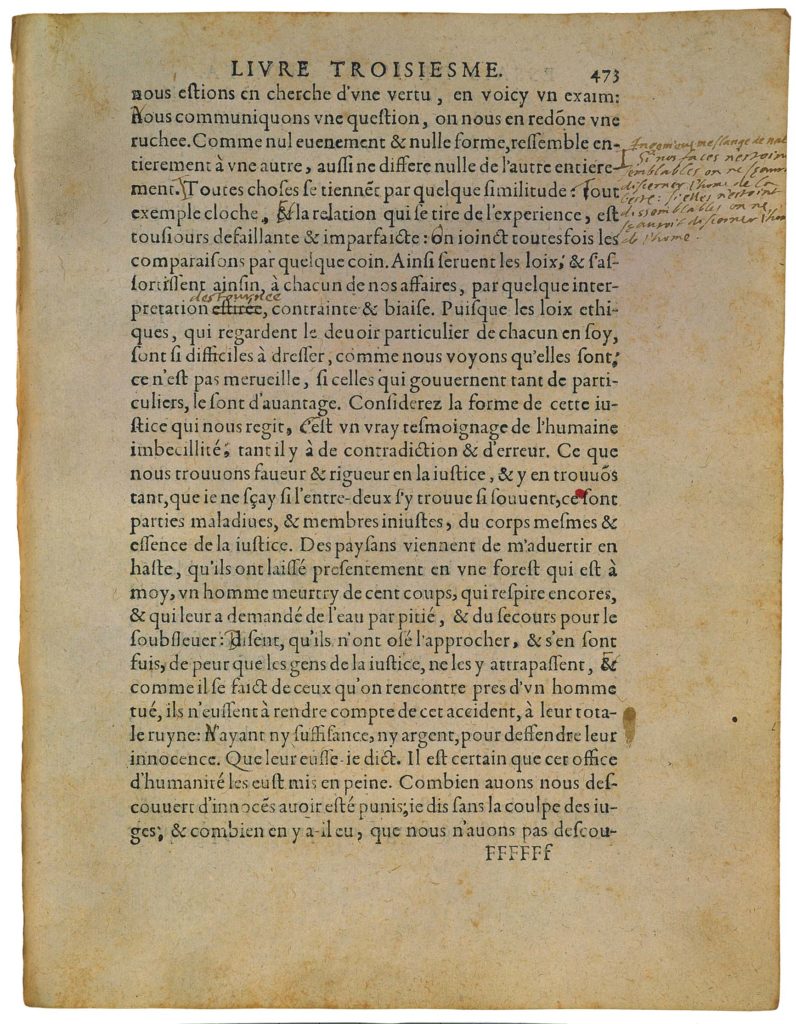 LIVRE TROISIESME. 473
nous estions en cherche d'vne vertu, en voicy vn exaim:
Nous communiquons vne question, on nous en redõne vne
ruchee. Comme nul euenement & nulle forme, ressemble en-
tierement à vne autre, aussi ne differe nulle de l'autre entiere-
ment. Toutes choses se tiennẽt par quelque similitude: Tout
exemple cloche, & la relation qui se tire de l'experience, est
tousiours defaillante & imparfaicte: On ioinct toutesfois les
comparaisons par quelque coin. Ainsi seruent les loix; & s'as-
sortissent ainsin, à chacun de nos affaires, par quelque inter-
destournée
pretation estirée, contrainte & biaise. Puisque les loix ethi-
ques, qui regardent le deuoir particulier de chacun en soy,
sont si difficiles à dresser, comme nous voyons qu'elles sont;
ce n'est pas merueille, si celles qui gouuernent tant de parti-
culiers, le sont d'auantage. Considerez la forme de cette iu-
stice qui nous regit, c'est vn vray tesmoignage de l'humaine
imbecillité; tant il y à de contradiction & d'erreur. Ce que
nous trouuons faueur & rigueur en la iustice, & y en trouuõs
tant, que ie ne sçay si l'entre-deux s'y trouue si souuent, ce sont
parties maladiues, & membres iniustes, du corps mesmes &
essence de la iustice. Des paysans viennent de m'aduertir en
haste, qu'ils ont laissé presentement en vne forest qui est à
moy, vn homme meurtry de cent coups, qui respire encores,
& qui leur a demandé de l'eau par pitié, & du secours pour le
soubsleuer: Disent, qu'ils n'ont osé l'approcher, & s'en sont
fuis, de peur que les gens de la iustice, ne les y attrapassent, &
comme il se faict de ceux qu'on rencontre pres d'vn homme
tué, ils n'eussent à rendre compte de cet accident, à leur tota-
le ruyne: N'ayant ny suffisance, ny argent, pour deffendre leur
innocence. Que leur eusse-ie dict. Il est certain que cet office
d'humanité les eust mis en peine. Combien auons nous des-
couuert d'innocẽs auoir esté punis; ie dis sans la coulpe des iu-
ges; & combien en y a-il eu, que nous n'auons pas descou-
FFFFFf
Ingenieus meslange de nat
Si nos faces nestoint
semblables on ne sçauroit
discerner l'home de la
beste: si elles nestoint
dissemblables on ne
sçauroit discerner l'hom
de l'home.